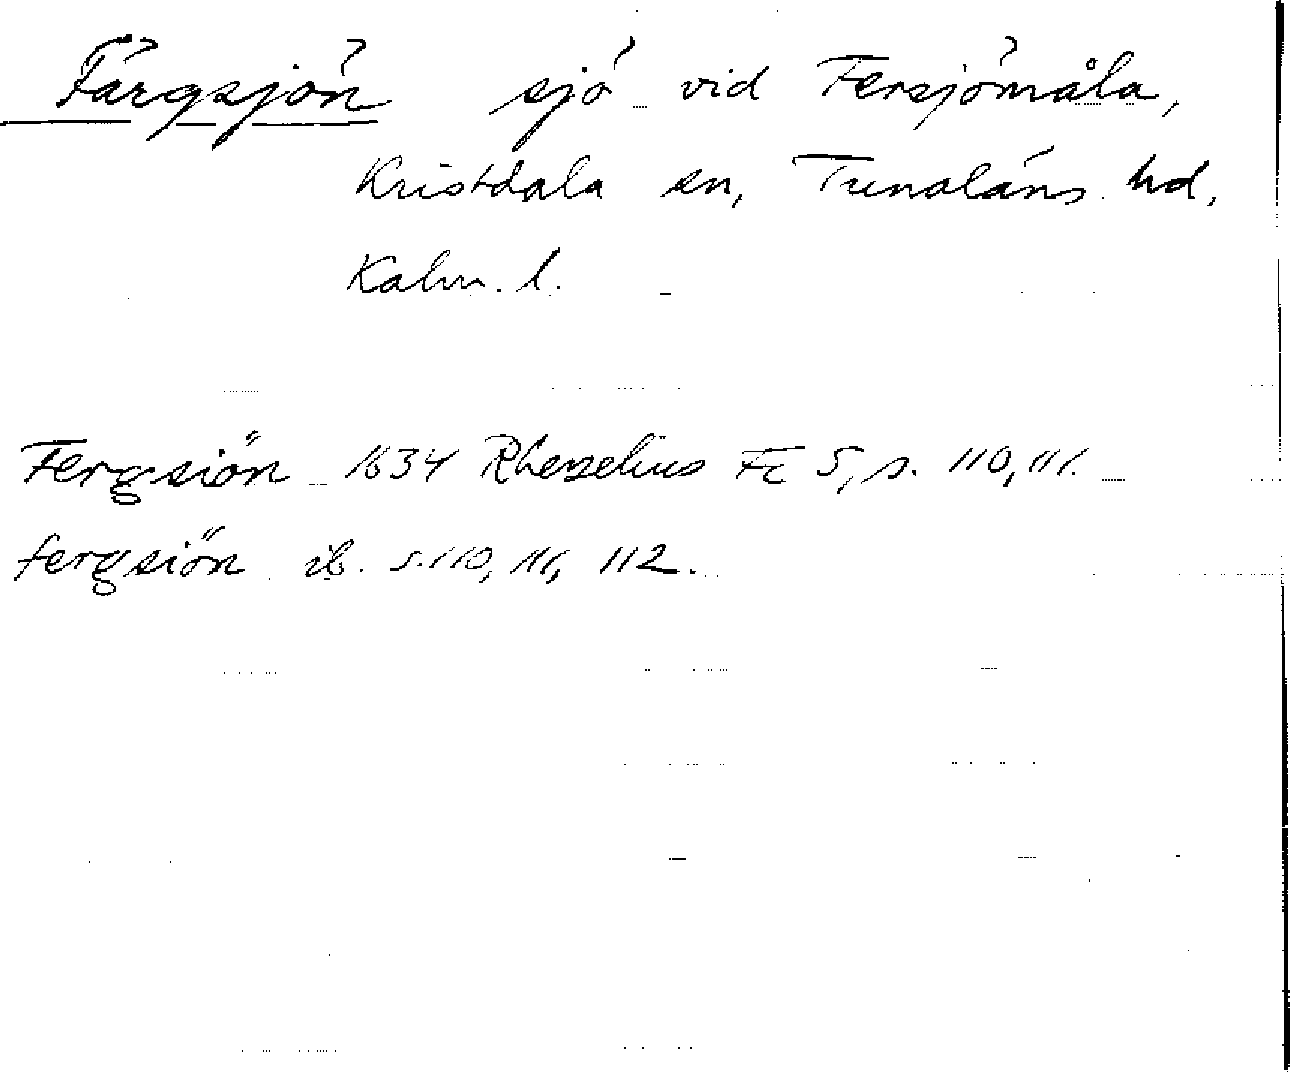 Färgsjön sjö vid Fersjömåla,
Kristdala sn, Tunaläns hd,
Kalm. l.
Fergsiön 1634 Rhezelius Fc 5, s. 110, 111.
fergsiön ib. s. 110, 111, 112.